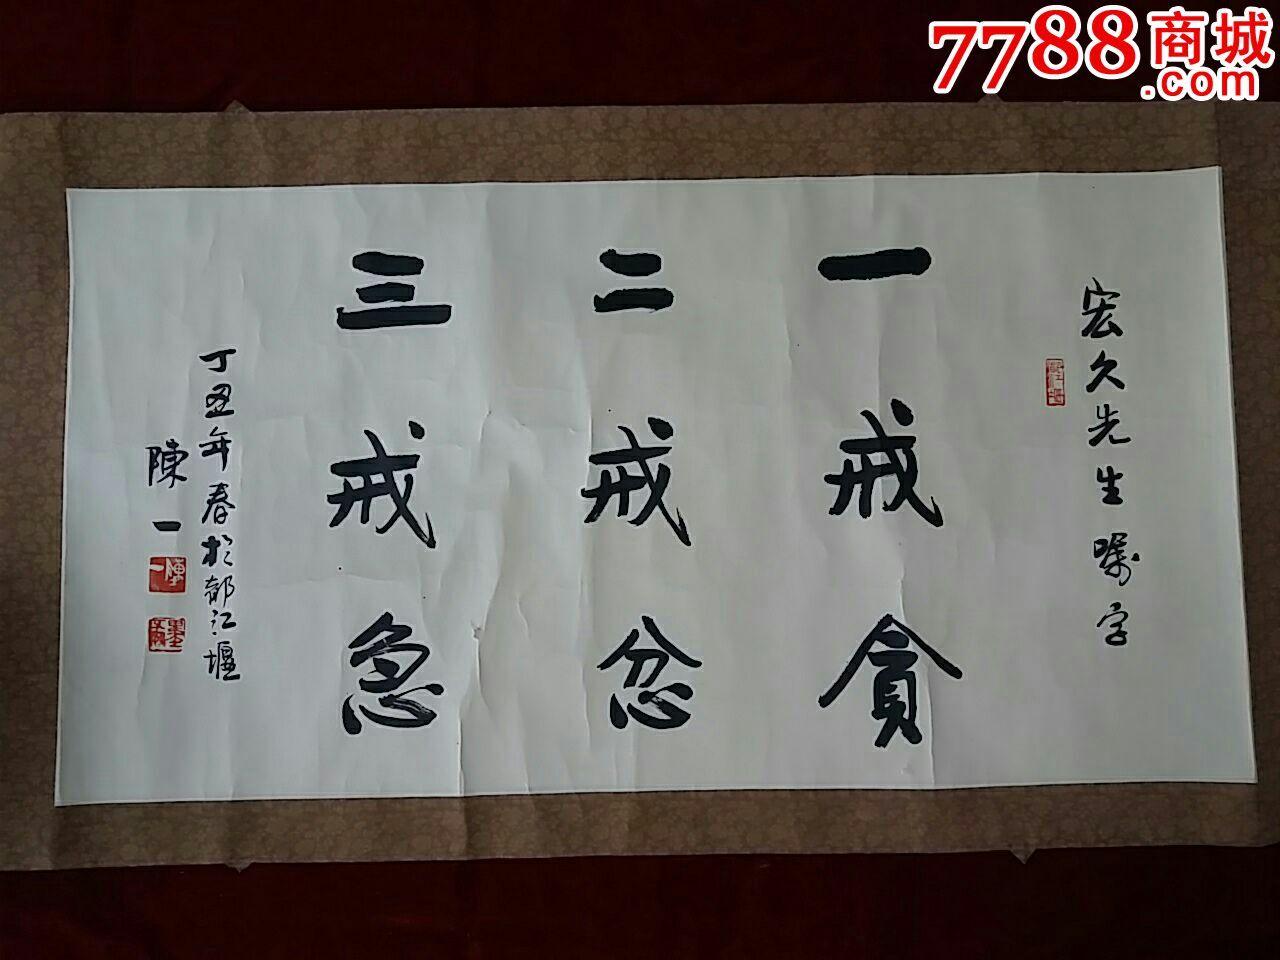 7788商城
.com
宏久先生嘱字
一戒貪
二戒忿
三戒急
丁丑年春於都江堰
陳一